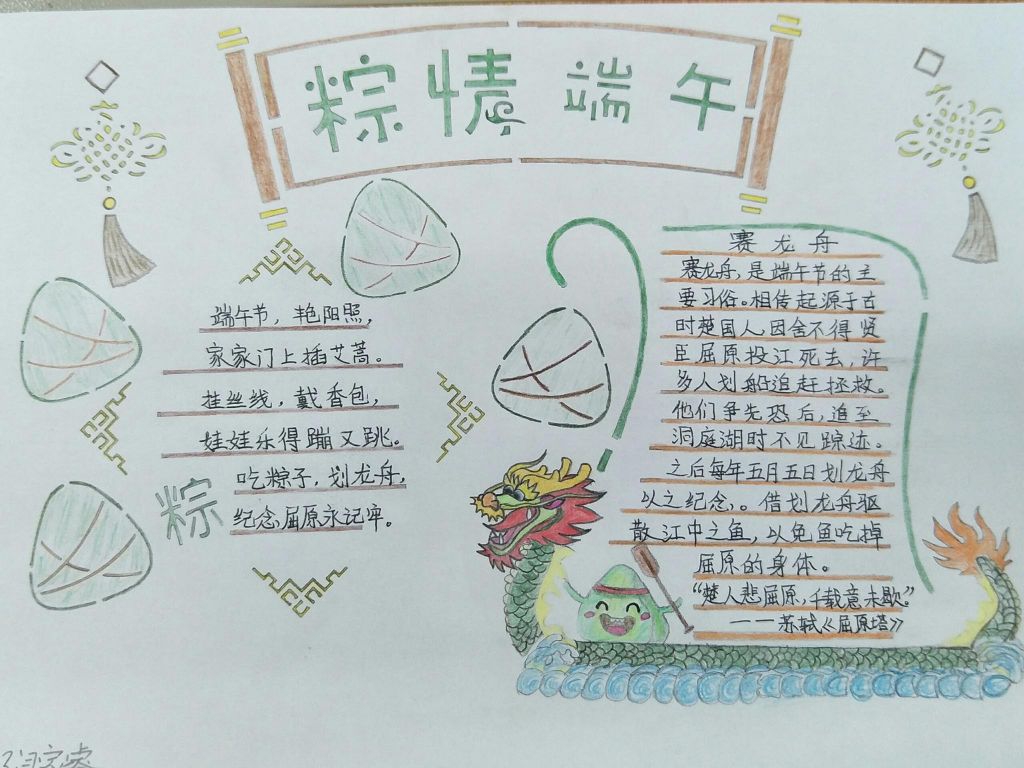 粽情端午
端午节，艳阳照，
家家门上插艾蒿。
挂丝线，戴香包，
娃娃乐得蹦又跳。
吃粽子，划龙舟，
纪念屈原永记牢。
粽
赛龙舟
赛龙舟，是端午节的主
要习俗。相传起源于古
时楚国人因舍不得贤
臣屈原投江死去，许
多人划船追赶拯救。
他们争先恐后，追至
洞庭湖时不见踪迹。
之后每年五月五日划龙舟
以之纪念。借划龙舟驱
散江中之鱼，以免鱼吃掉
屈原的身体。
“楚人悲屈原，千载意未歇。”
———苏轼《屈原塔》